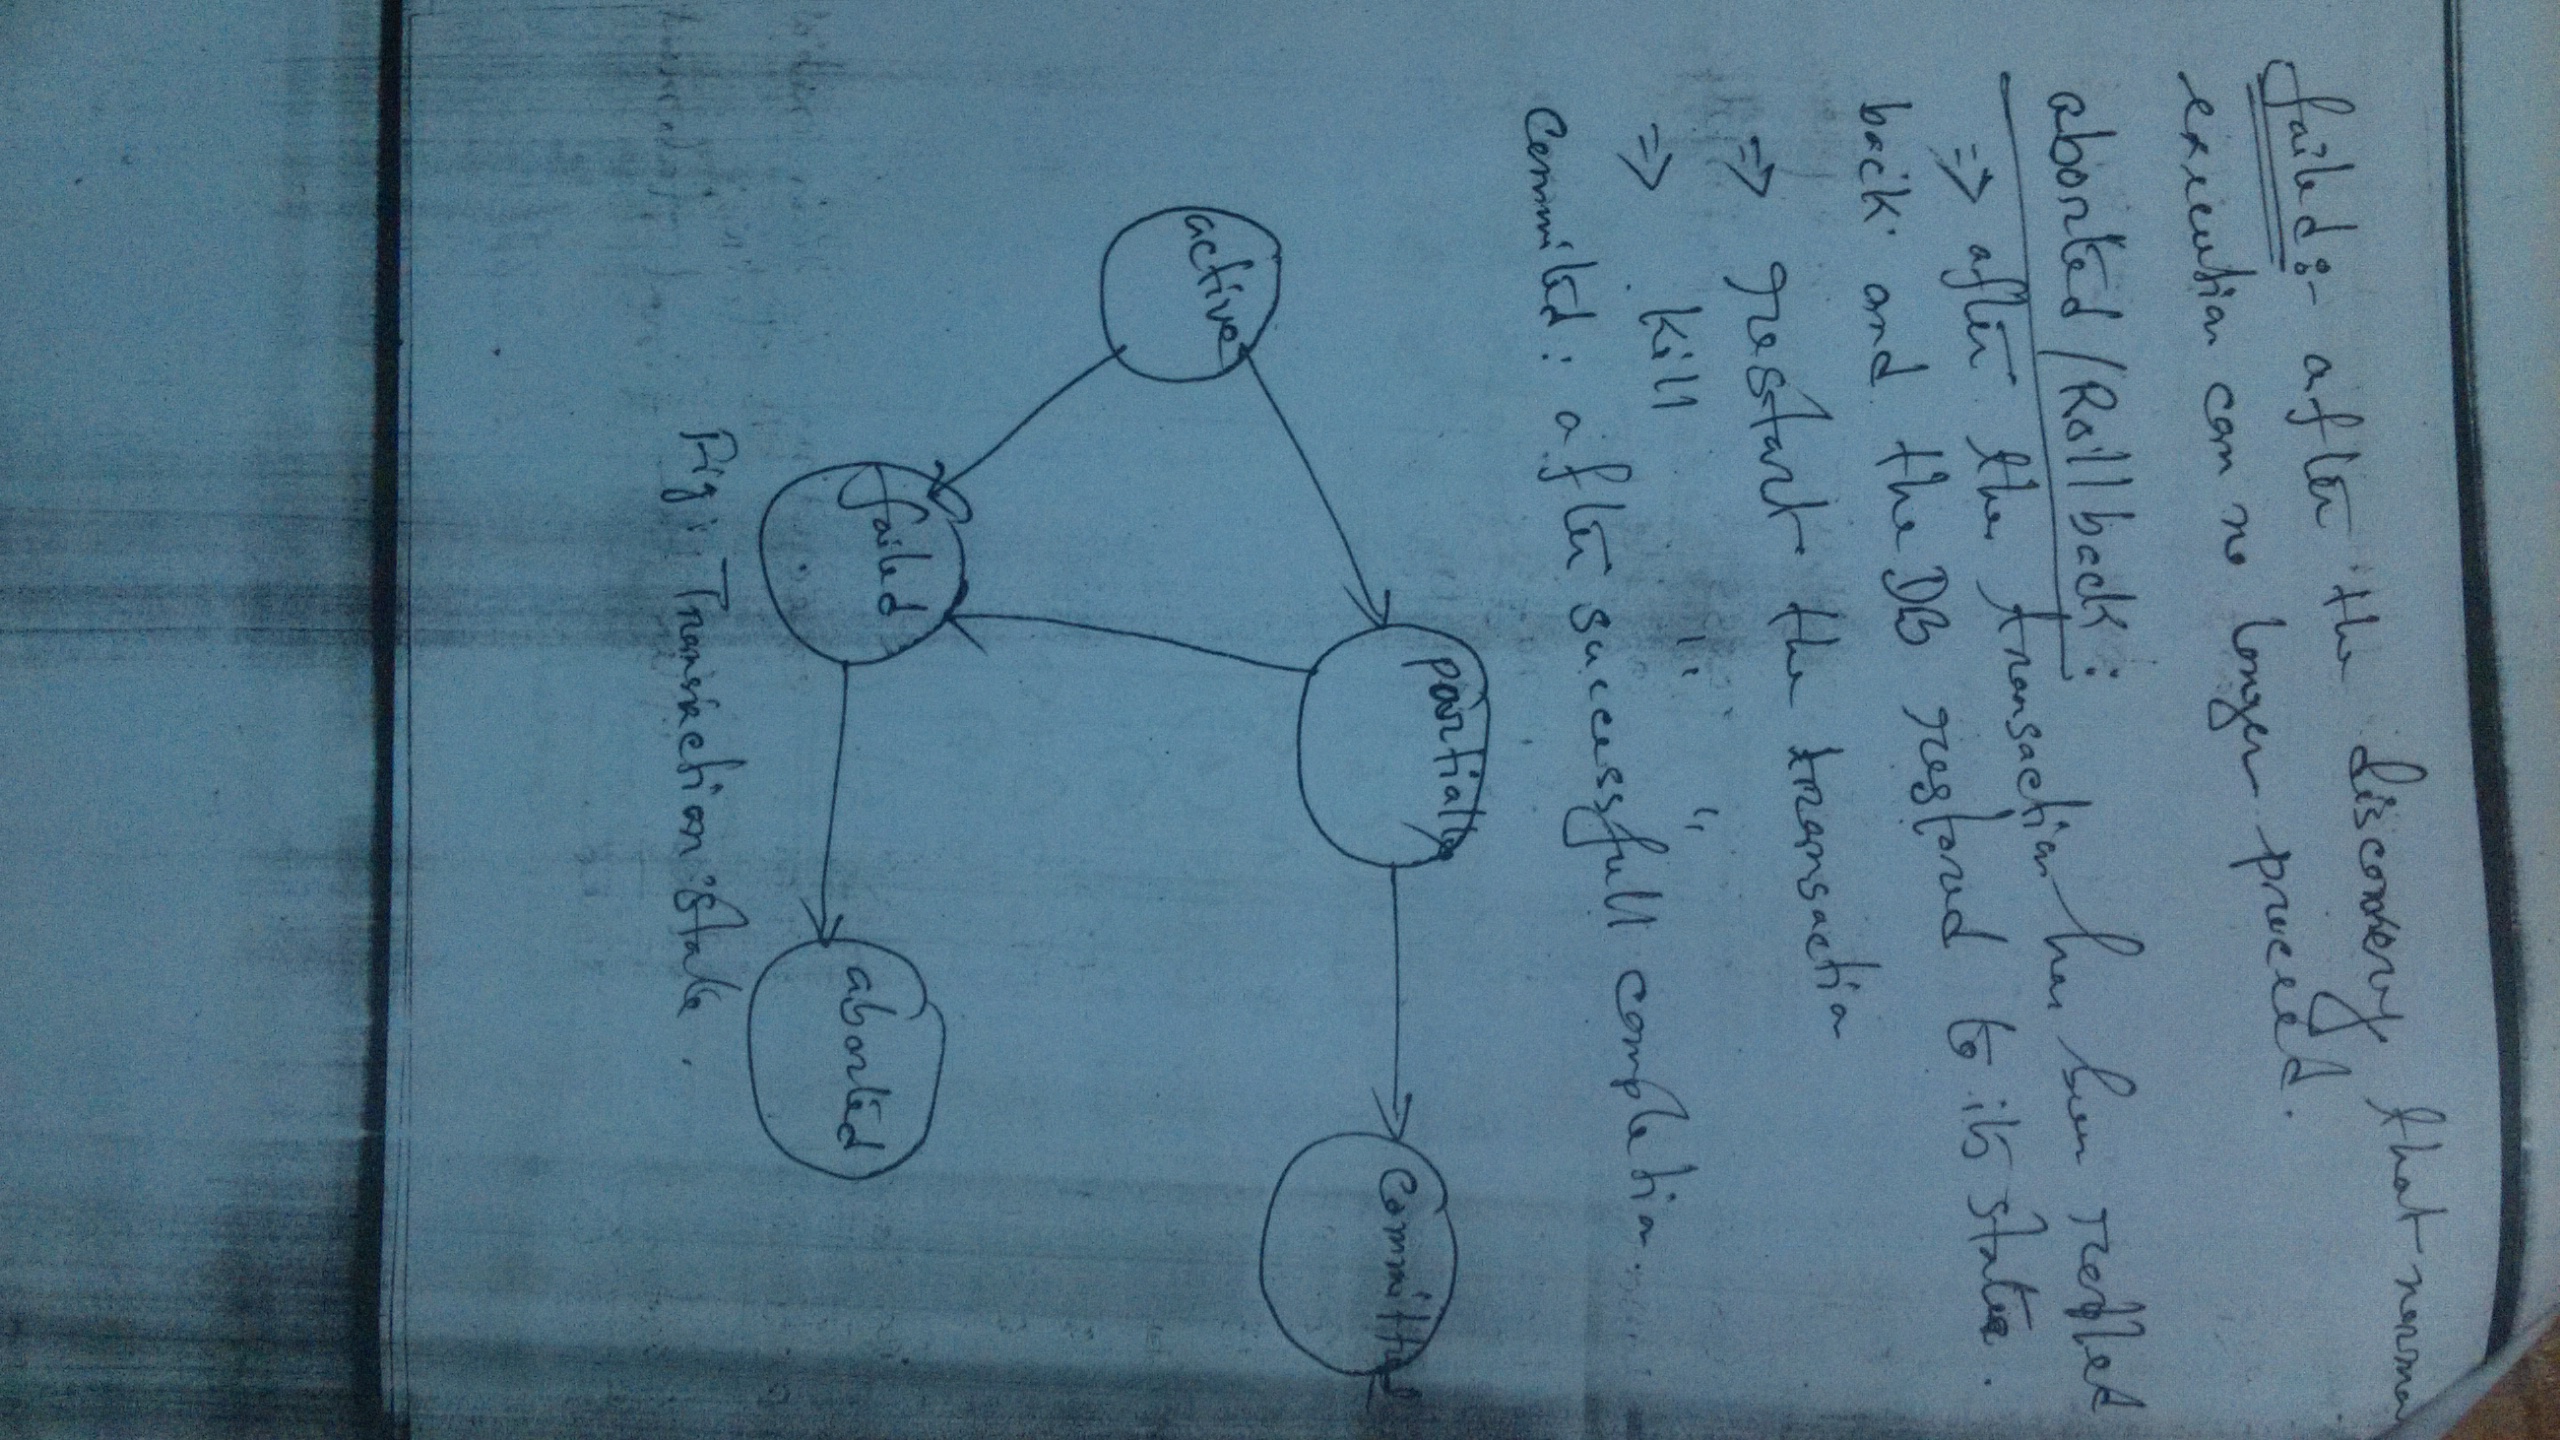 failed :- after the discovery that norma
execution can no longer proceed.
aborted / Roll back :
⇒ after the transaction has been
back and the DB restored to its state.
⇒ restart the transaction
⇒ kill " "
Commited : after successfull completion.
active
partially
Committed
failed
aborted
Fig : Transaction state.